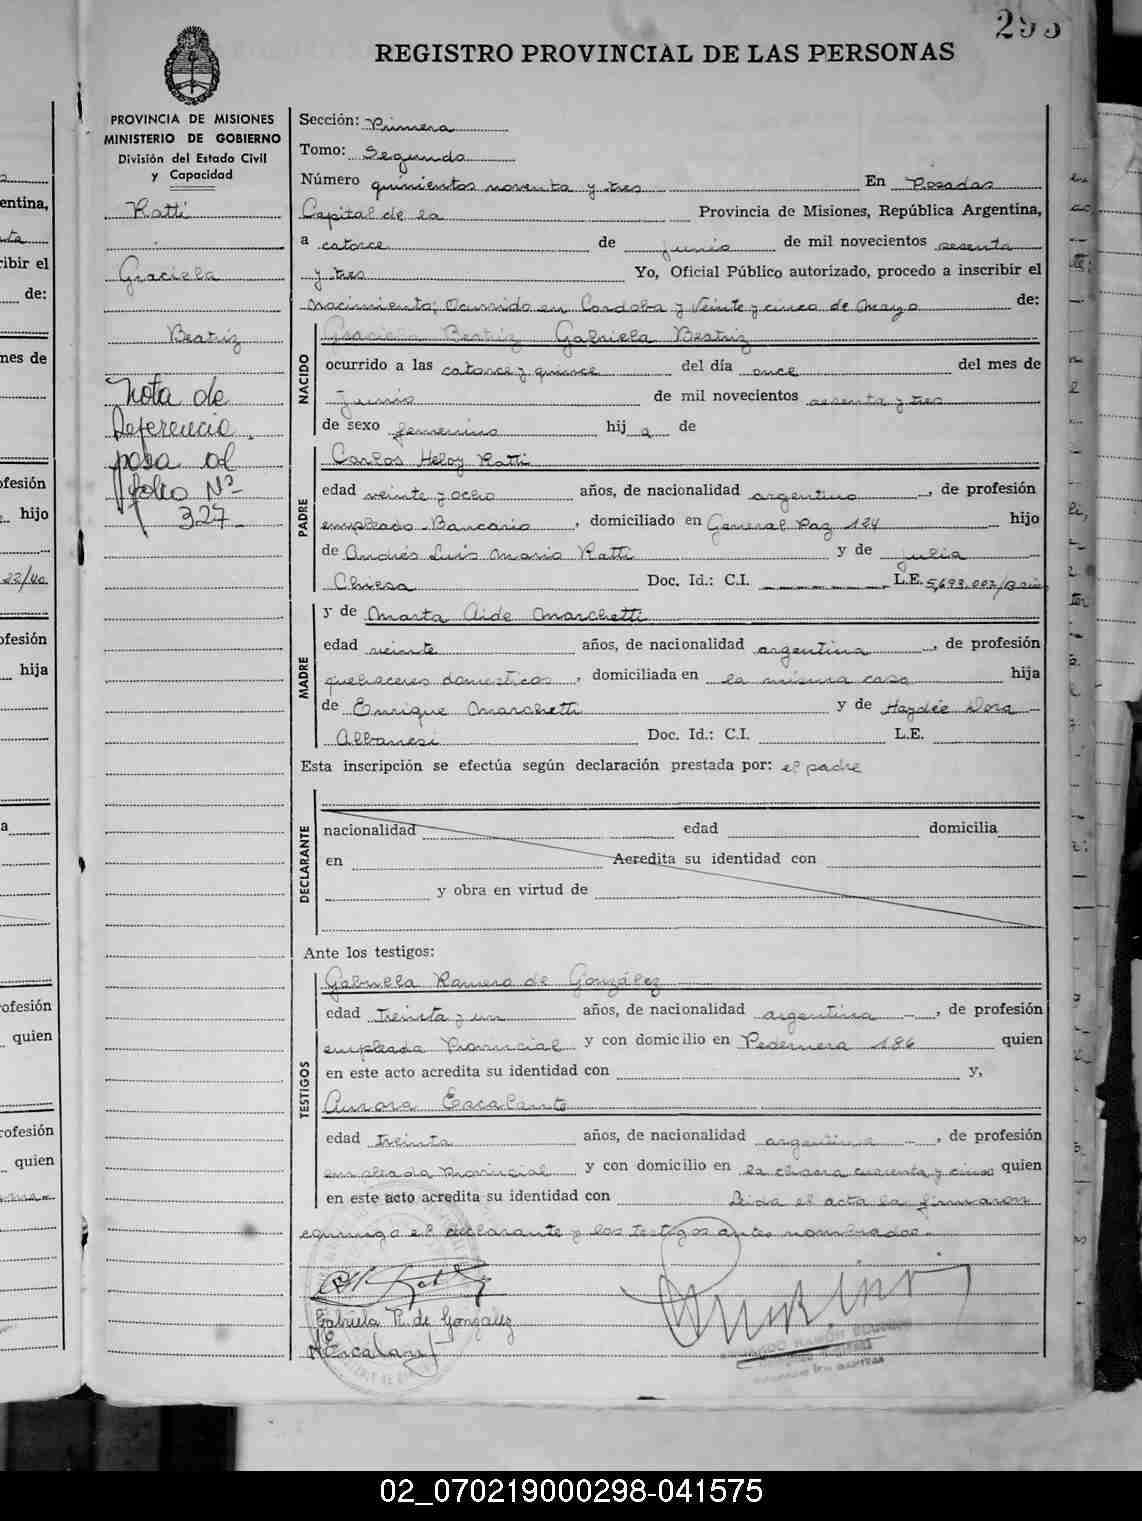 293
REGISTRO PROVINCIAL DE LAS PERSONAS
PROVINCIA DE MISIONES
MINISTERIO DE GOBIERNO
División del Estado Civil
y Capacidad
Ratti
Graciela
Beatriz
Nota de
Referencia
pasa al
folio Nº
327
Sección: Primera
Tomo: Segundo
Número quinientos noventa y tres En Posadas
Capital de la Provincia de Misiones, República Argentina,
a catorce de junio de mil novecientos sesenta
y tres Yo, Oficial Público autorizado, procedo a inscribir el
nacimiento; Ocurrido en Cordoba y Veinte y cinco de Mayo de:
NACIDO
Graciela Beatriz Gabriela Beatriz
ocurrido a las catorce y quince del día once del mes de
junio de mil novecientos sesenta y tres
de sexo femenino hij a de
PADRE
Carlos Heloy Ratti
edad veinte y ocho años, de nacionalidad argentino, de profesión
empleado Bancario, domiciliado en General Paz 124 hijo
de Andrés Luis Mario Ratti y de Julia
Chiesa Doc. Id.: C.I. L.E. 5,693.007
MADRE
y de Marta Aide Marchetti
edad veinte años, de nacionalidad argentina, de profesión
quehaceres domesticos, domiciliada en la misma casa hija
de Enrique Marchetti y de Haydée Dora
Albanesi Doc. Id.: C.I. L.E.
Esta inscripción se efectúa según declaración prestada por: el padre
DECLARANTE
nacionalidad edad domicilia
en Acredita su identidad con
y obra en virtud de
Ante los testigos:
TESTIGOS
Gabriela Romero de González
edad treinta y un años, de nacionalidad argentina, de profesión
empleada Provincial y con domicilio en Pedernera 186 quien
en este acto acredita su identidad con y,
Aurora Escalante
edad treinta años, de nacionalidad argentina, de profesión
empleada Provincial y con domicilio en la chacra cuarenta y cinco quien
en este acto acredita su identidad con Leida el acta la firmaron
conmigo el declarante y los testigos antes nombrados.
Gabriela R. de González
AEscalante
02_070219000298-041575